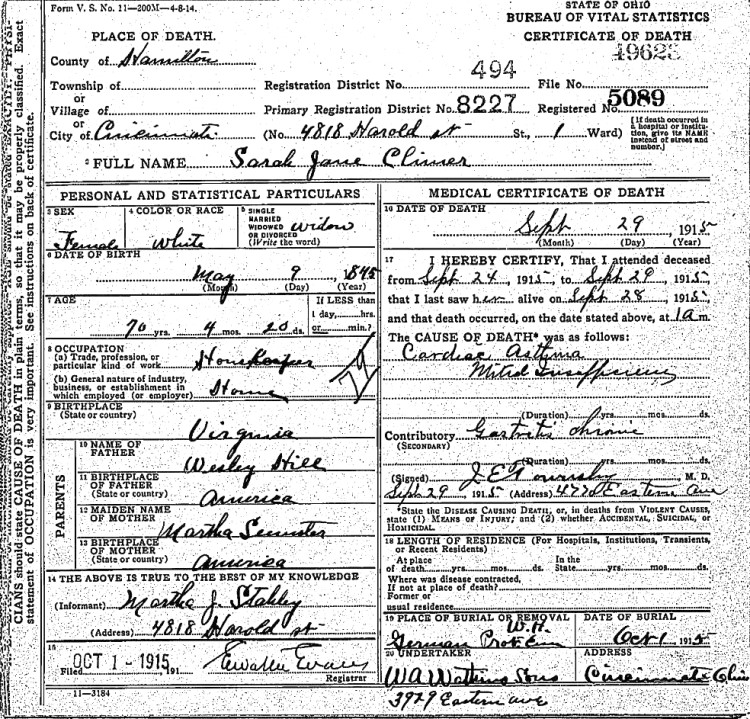 Form V. S. No. 11—200M—4-8-14.
STATE OF OHIO
BUREAU OF VITAL STATISTICS
PLACE OF DEATH.
CERTIFICATE OF DEATH
County of Hamilton
49623
Township of
Registration District No. 494
File No.
or
Village of
Primary Registration District No. 8227
Registered No. 5089
or
City of Cincinnati
(No. 4818 Harold st St., 1 Ward)
[If death occurred in a hospital or institution, give its NAME instead of street and number.]
2 FULL NAME Sarah Jane Climer
PERSONAL AND STATISTICAL PARTICULARS
3 SEX
Female
4 COLOR OR RACE
White
5 SINGLE
MARRIED
WIDOWED
OR DIVORCED
(Write the word)
Widow
6 DATE OF BIRTH
May 9, 1845
(Month) (Day) (Year)
7 AGE
70 yrs. 4 mos. 20 ds.
If LESS than
1 day,......hrs.
or......min.?
8 OCCUPATION
(a) Trade, profession, or
particular kind of work
Housekeeper
(b) General nature of industry,
business, or establishment in
which employed (or employer)
Home
9 BIRTHPLACE
(State or country)
Virginia
PARENTS
10 NAME OF
FATHER
Wesley Hill
11 BIRTHPLACE
OF FATHER
(State or country)
America
12 MAIDEN NAME
OF MOTHER
Martha
13 BIRTHPLACE
OF MOTHER
(State or country)
America
14 THE ABOVE IS TRUE TO THE BEST OF MY KNOWLEDGE
(Informant) Martha J.
(Address) 4818 Harold st
15
Filed OCT 1 - 1915, 191
Evans
Registrar
11—3184
MEDICAL CERTIFICATE OF DEATH
16 DATE OF DEATH
Sept 29, 1915
(Month) (Day) (Year)
17 I HEREBY CERTIFY, That I attended deceased
from Sept 24, 1915, to Sept 29, 1915,
that I last saw her alive on Sept 28, 1915,
and that death occurred, on the date stated above, at 1 a m.
The CAUSE OF DEATH* was as follows:
Cardiac Asthma
Mitral Insufficiency
(Duration) yrs. mos. ds.
Contributory Gastritis chronic
(SECONDARY)
(Duration) yrs. mos. ds.
(Signed) M. D.
Sept 29, 1915 (Address) Eastern Ave
*State the DISEASE CAUSING DEATH, or, in deaths from VIOLENT CAUSES,
state (1) MEANS OF INJURY; and (2) whether ACCIDENTAL, SUICIDAL, or
HOMICIDAL.
18 LENGTH OF RESIDENCE (For Hospitals, Institutions, Transients,
or Recent Residents)
At place
of death yrs. mos. ds.
In the
State yrs. mos. ds.
Where was disease contracted,
If not at place of death?
Former or
usual residence
19 PLACE OF BURIAL OR REMOVAL
W.H.
German Prot Cem
DATE OF BURIAL
Oct 1 1915
20 UNDERTAKER
W A Watkins Sons
ADDRESS
Cincinnati Ohio
3929 Eastern Ave
CIANS should state CAUSE OF DEATH in plain terms, so that it may be properly classified. Exact
statement of OCCUPATION is very important. See instructions on back of certificate.